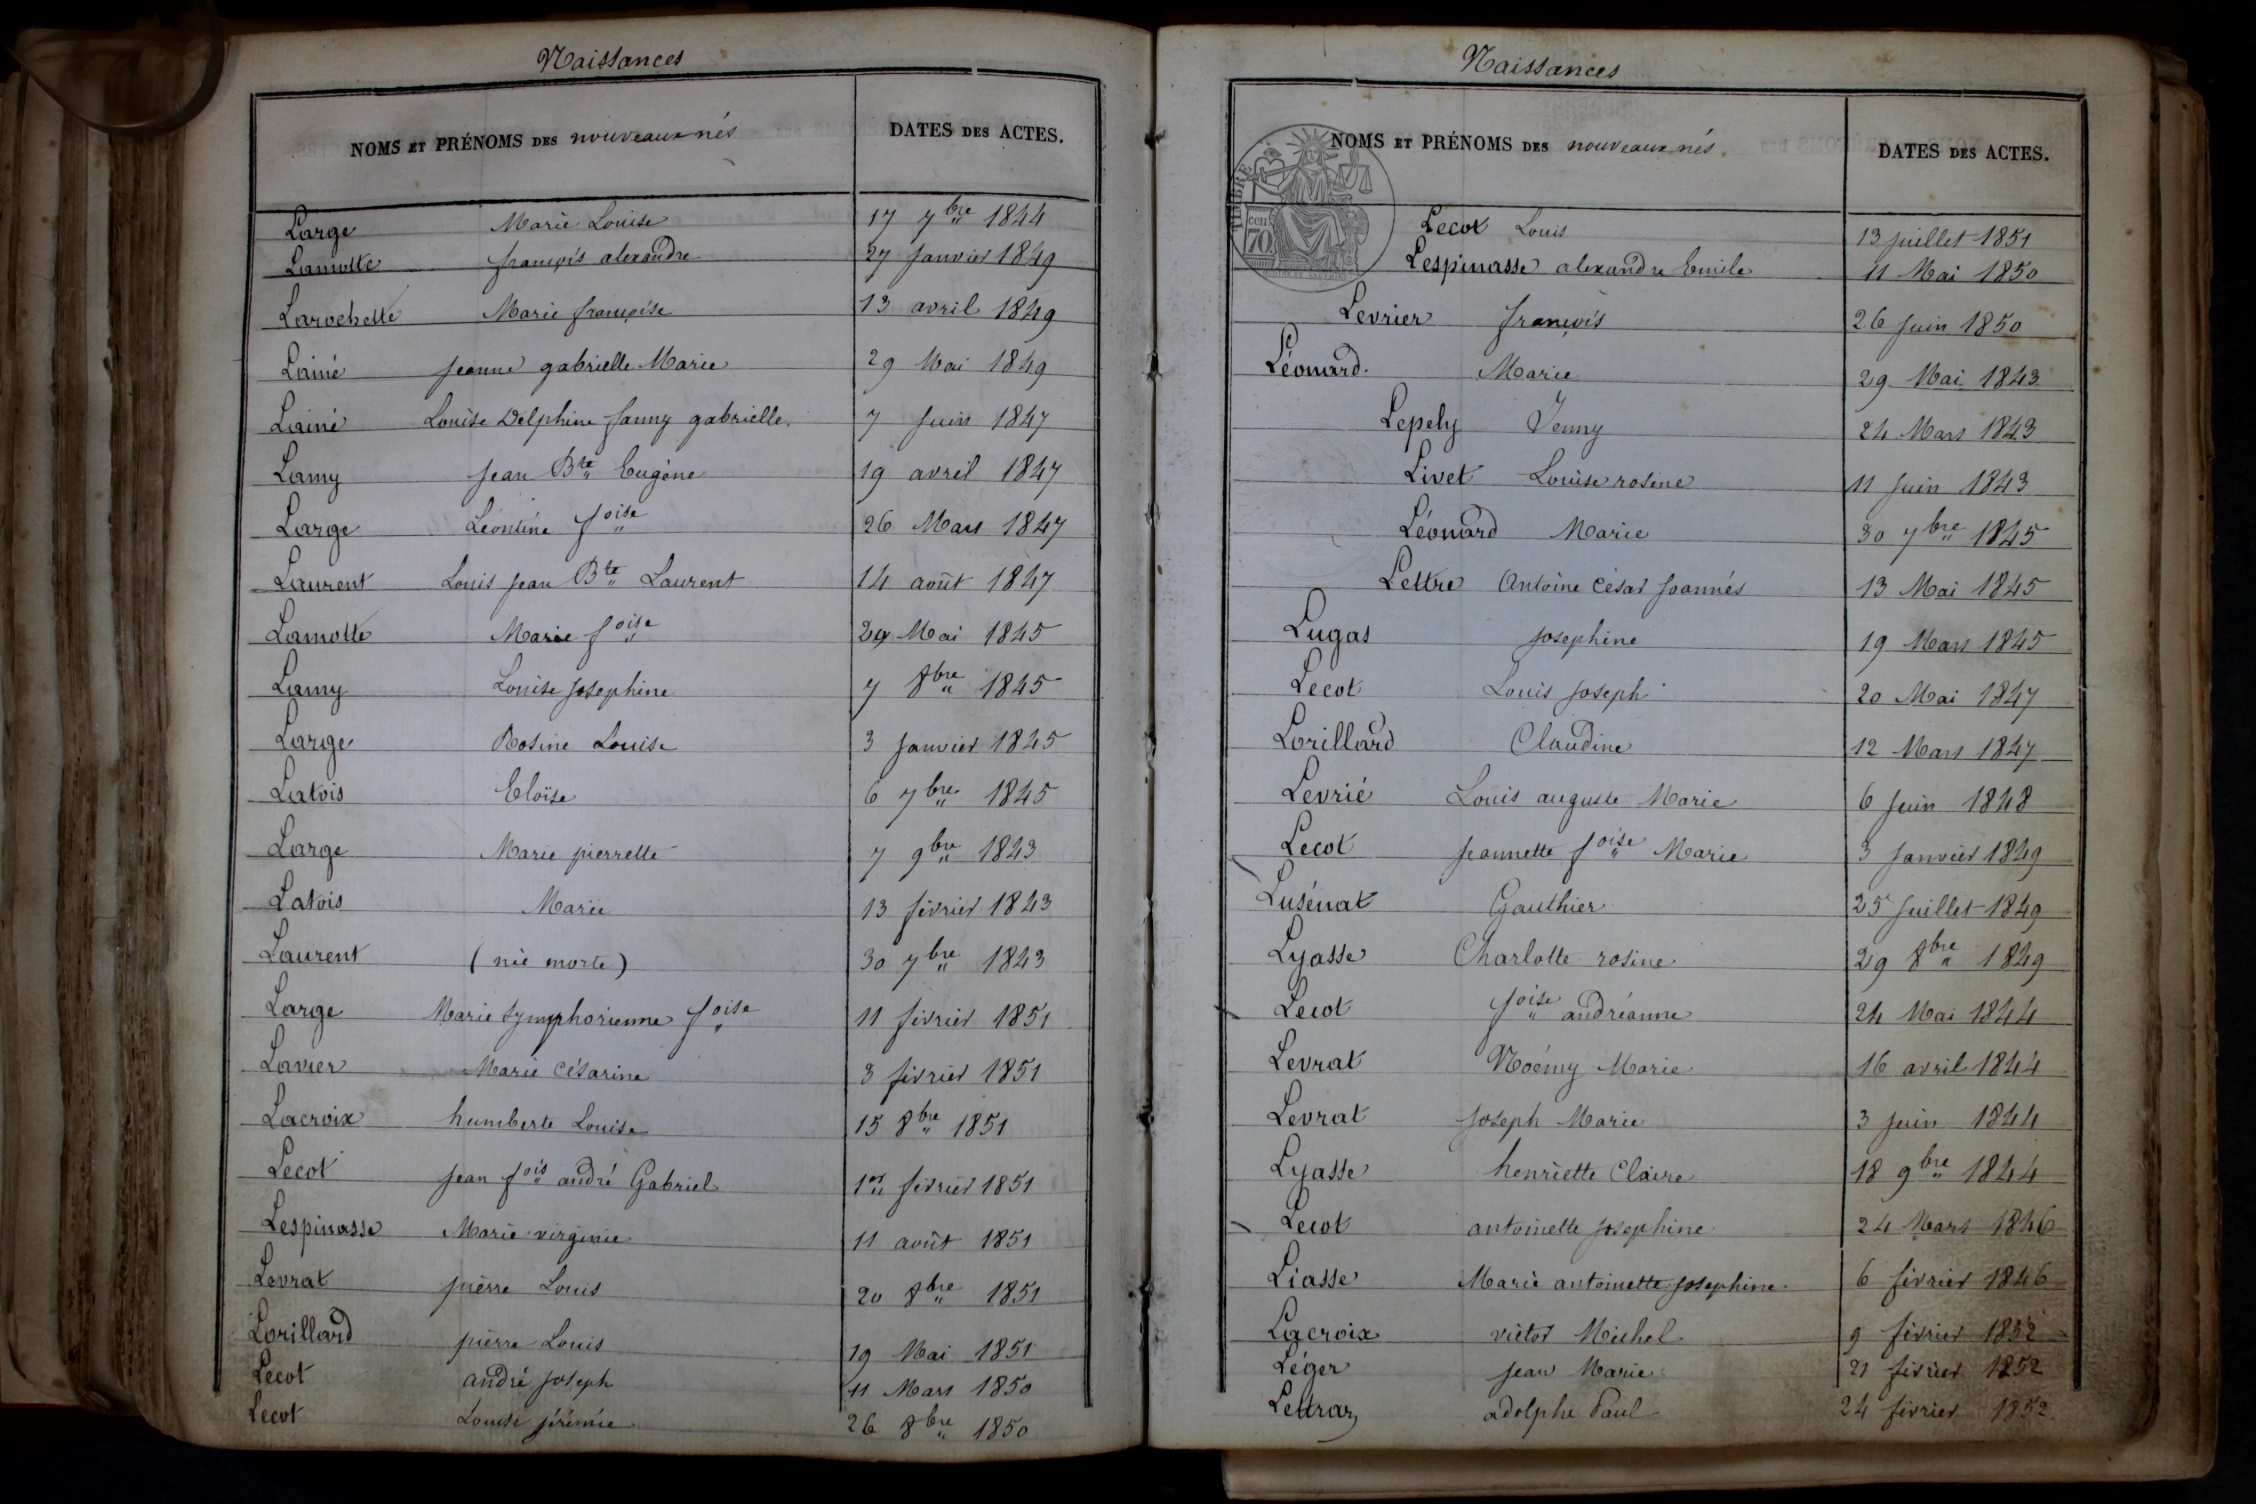 Naissances
NOMS ET PRÉNOMS DES nouveaux nés DATES DES ACTES.
Large Marie Louise 17 7bre 1844
Lamotte françois alexandre 27 Janvier 1849
Larochette Marie françoise 13 avril 1849
Lainé Jeanne gabrielle Marie 29 Mai 1849
Lainé Louise Delphine fanny gabrielle 7 Juin 1847
Lamy Jean Bte Eugène 19 avril 1847
Large Léontine foise 26 Mars 1847
Laurent Louis Jean Bte Laurent 14 août 1847
Lamotte Marie foise 29 Mai 1845
Lamy Louise Josephine 7 8bre 1845
Large Rosine Louise 3 Janvier 1845
Latois Eloïse 6 7bre 1845
Large Marie pierrette 7 9bre 1843
Latois Marie 13 février 1843
Laurent (née morte) 30 7bre 1843
Large Marie Symphorienne foise 11 février 1851
Lavier Marie Césarine 3 février 1851
Lacroix humberte Louise 15 8bre 1851
Lecot Jean fois andré Gabriel 1er février 1851
Lespinasse Marie virginie 11 août 1851
Levrat pierre Louis 20 8bre 1851
Lorillard pierre Louis 19 Mai 1851
Lecot andré Joseph 11 Mars 1850
Lecot Louise jérémie 26 8bre 1850
Naissances
NOMS ET PRÉNOMS DES nouveaux nés. DATES DES ACTES.
TIMBRE
70
Lecot Louis 13 Juillet 1851
Lespinasse alexandre Emile 11 Mai 1850
Levrier françois 26 Juin 1850
Léonard Marie 29 Mai 1843
Lepely Jenny 24 Mars 1843
Livet Louise rosine 11 Juin 1843
Léonard Marie 30 7bre 1845
Lettre Antoine César Joannés 13 Mai 1845
Lugas Josephine 19 Mars 1845
Lecot Louis Joseph 20 Mai 1847
Lorillard Claudine 12 Mars 1847
Levrié Louis auguste Marie 6 Juin 1848
Lecot Jeannette foise Marie 3 Janvier 1849
Lusénat Gauthier 25 Juillet 1849
Lyasse Charlotte rosine 29 8bre 1849
Lecot foise andréanne 24 Mai 1844
Levrat Noémy Marie 16 avril 1844
Levrat Joseph Marie 3 Juin 1844
Lyasse henriette Claire 18 9bre 1844
Lecot antoinette Josephine 24 Mars 1846
Liasse Marie antoinette Josephine 6 février 1846
Lacroix victor Michel 9 février 1852
Léger Jean Marie 21 février 1852
adolphe Paul 24 février 1852